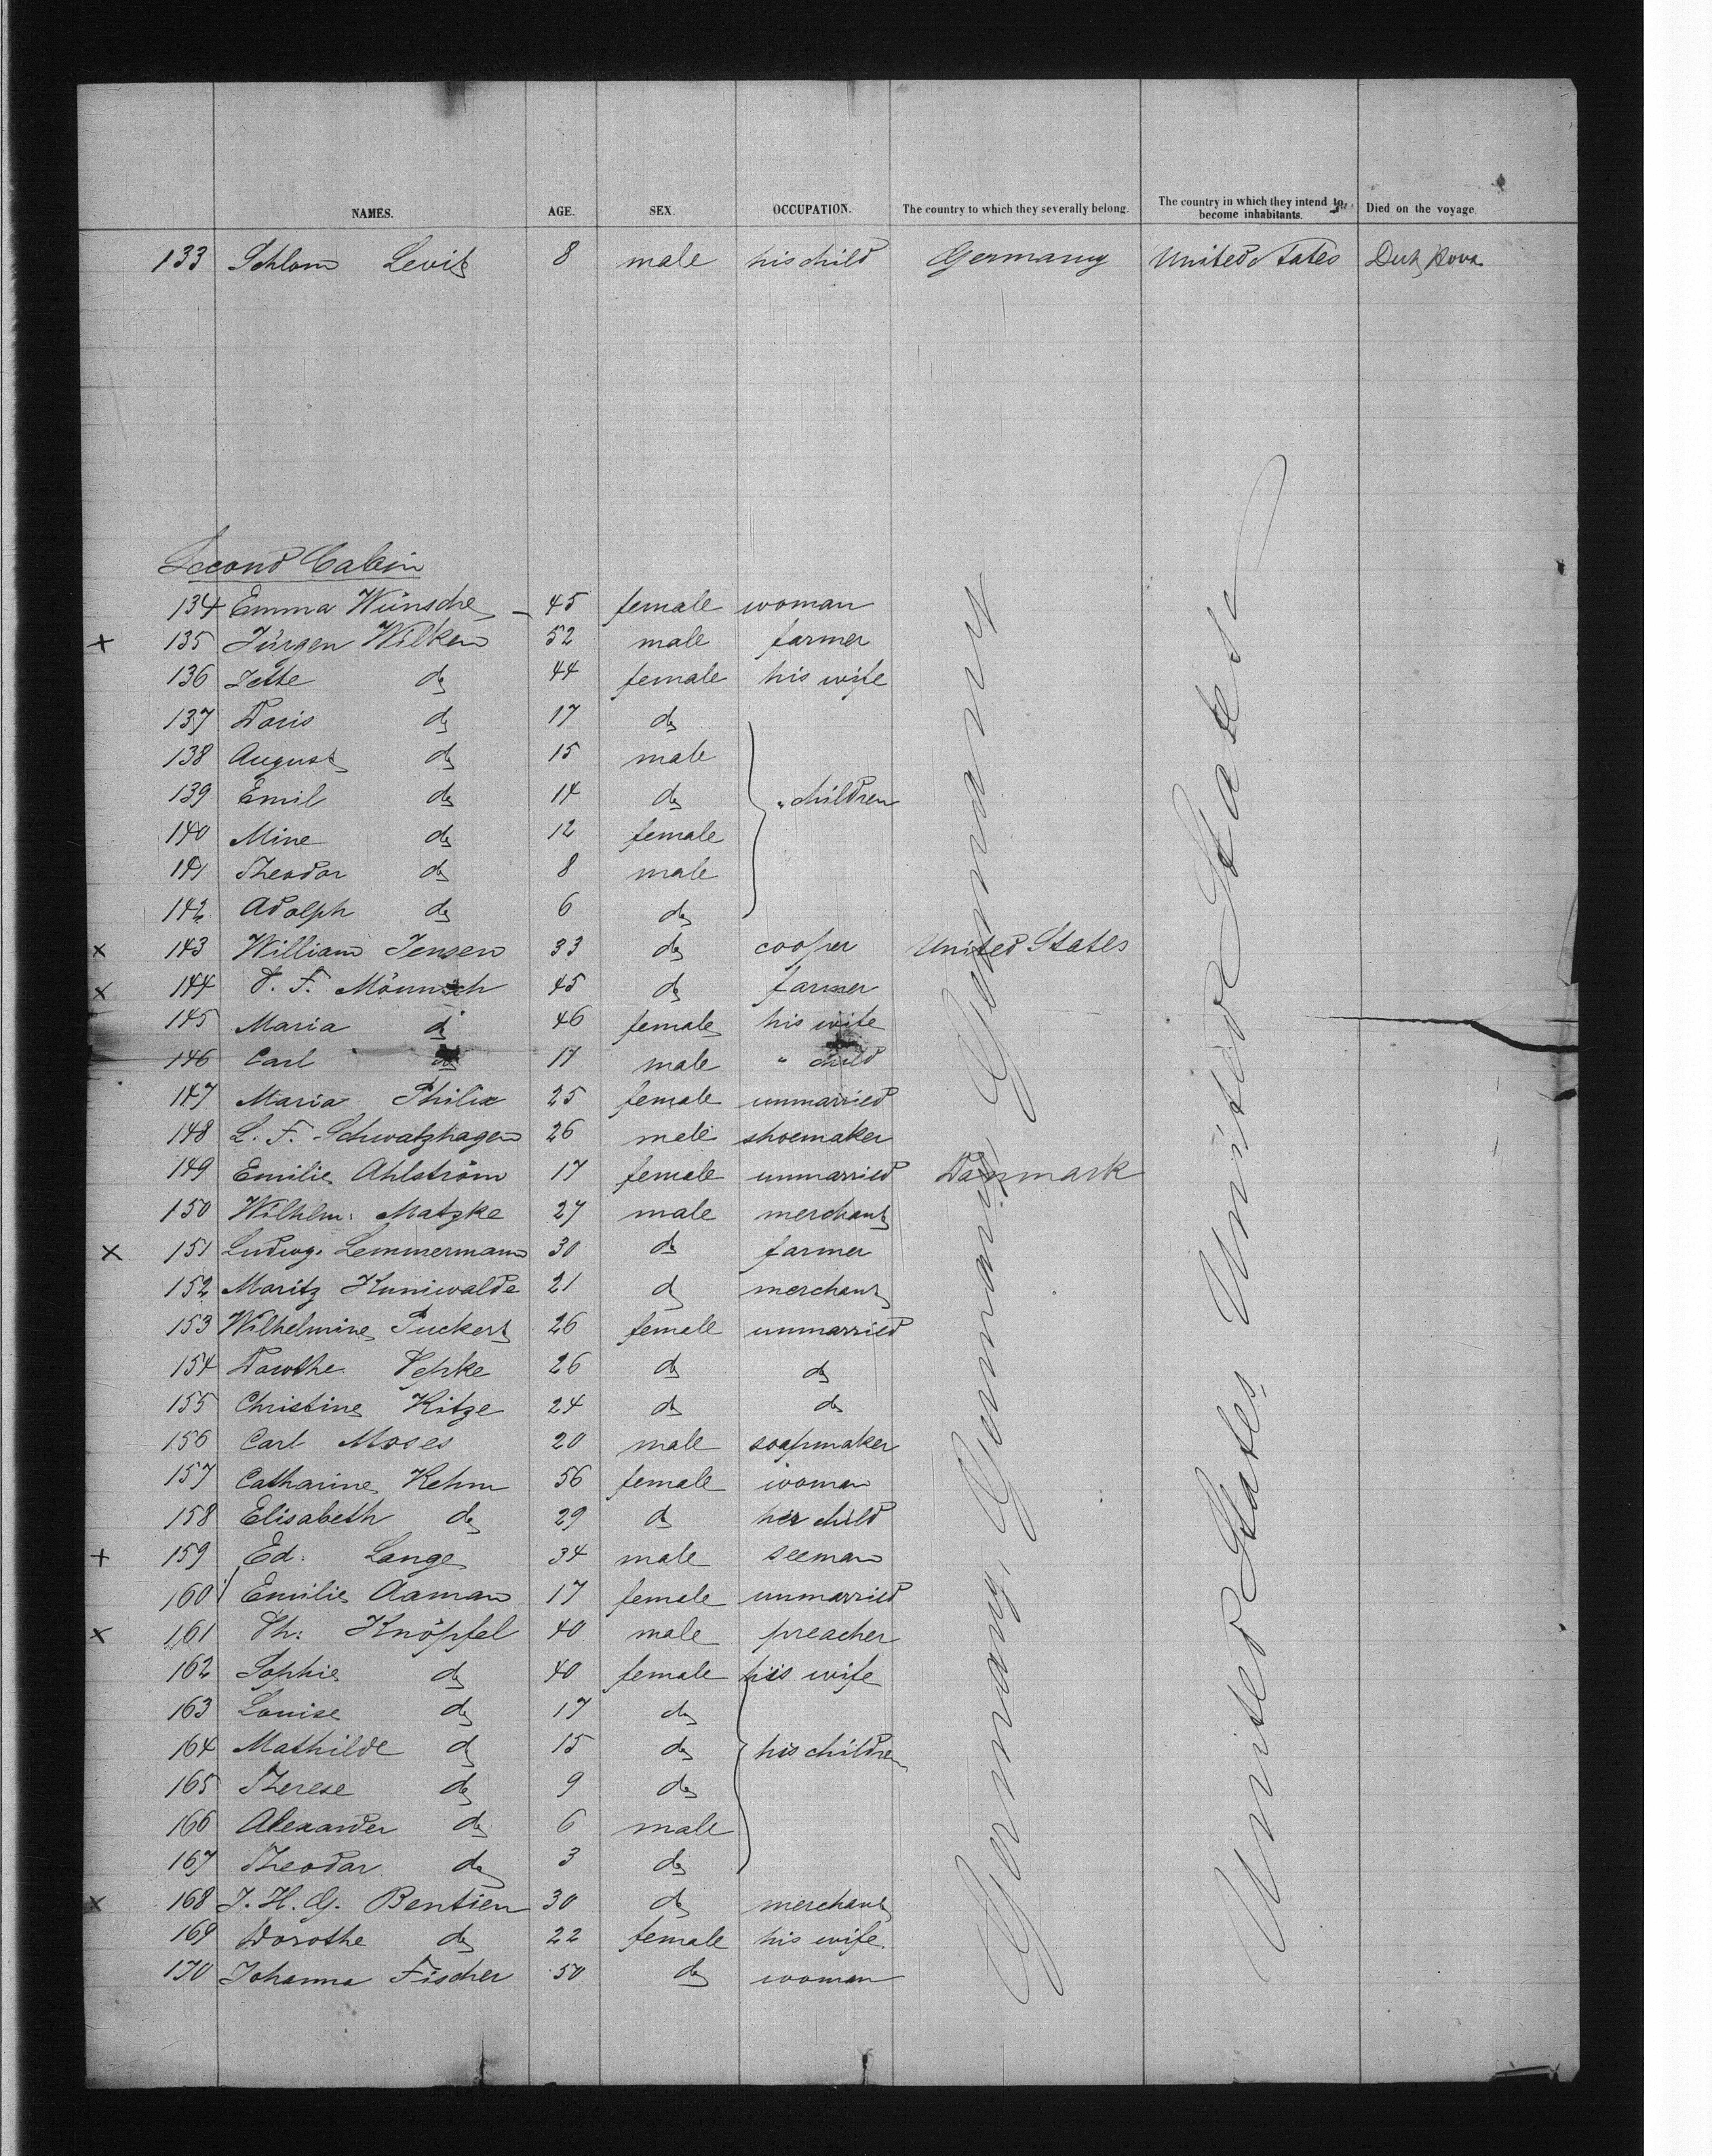 NAMES. AGE. SEX. OCCUPATION. The country to which they severally belong. The country in which they intend to become inhabitants. Died on the voyage.
133 Schlom Levit 8 male his child Germany United States
Second Cabin
134 Emma Wünsche 45 female woman
x 135 Jürgen Wilken 52 male farmer
136 Jette do 44 female his wife
137 Doris do 17 do
138 August do 15 male
139 Emil do 14 do " children
140 Mine do 12 female
141 Theodor do 8 male
142 Adolph do 6 do
x 143 William Jensen 33 do cooper United States
x 144 D. F. Mönnich 45 do farmer
145 Maria do 46 female his wife
146 Carl do 17 male " child
147 Maria Philix 25 female unmarried
148 L. F. Schwatzhagen 26 male shoemaker
149 Emilie Ahlström 17 female unmarried Danmark
150 Wilhlm. Matzke 27 male merchant
x 151 Ludwg. Lemmermann 30 do farmer
152 Moritz Kuniwalde 21 do merchant
153 Wilhelmine Puckert 26 female unmarried
154 Dorothe Depke 26 do do
155 Christine Kitze 24 do do
156 Carl Moses 20 male soapmaker
157 Catharine Kehm 56 female woman
158 Elisabeth do 29 do her child
x 159 Ed. Lange 34 male seeman
160 Emilie Aaman 17 female unmarried
x 161 Th: Knöpfel 40 male preacher
162 Sophie do 40 female his wife
163 Louise do 17 do
164 Mathilde do 15 do his children
165 Therese do 9 do
166 Alexander do 6 male
167 Theodor do 3 do
x 168 J. H. G. Bentien 30 do merchant
169 Dorothe do 22 female his wife
170 Johanna Fischer 50 do woman
Germany, Germany, Germany
United States United States